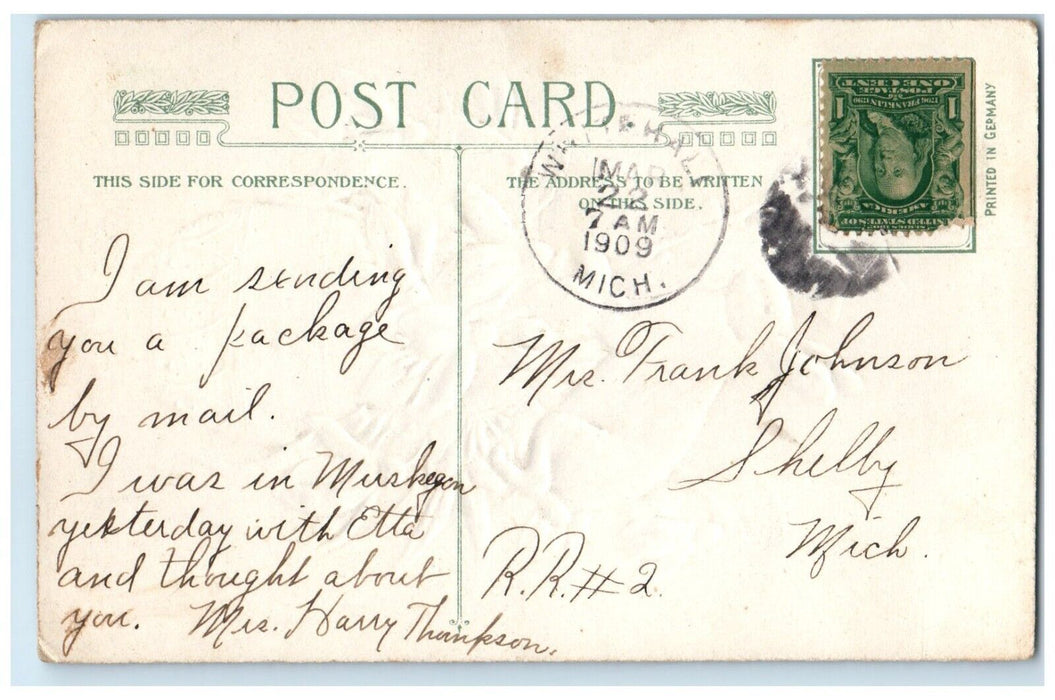 POST CARD
THIS SIDE FOR CORRESPONDENCE.
THE ADDRESS TO BE WRITTEN
ON THIS SIDE.
WHITEHALL
MAR
7 AM
1909
MICH.
ONE CENT
POSTAGE
1 1
UNITED STATES OF
AMERICA
PRINTED IN GERMANY
I am sending
you a package
by mail.
I was in Muskegon
yesterday with Etta
and thought about
you. Mrs. Harry Thompson.
Mrs. Frank Johnson
Shelby
Mich.
R.R. #2.